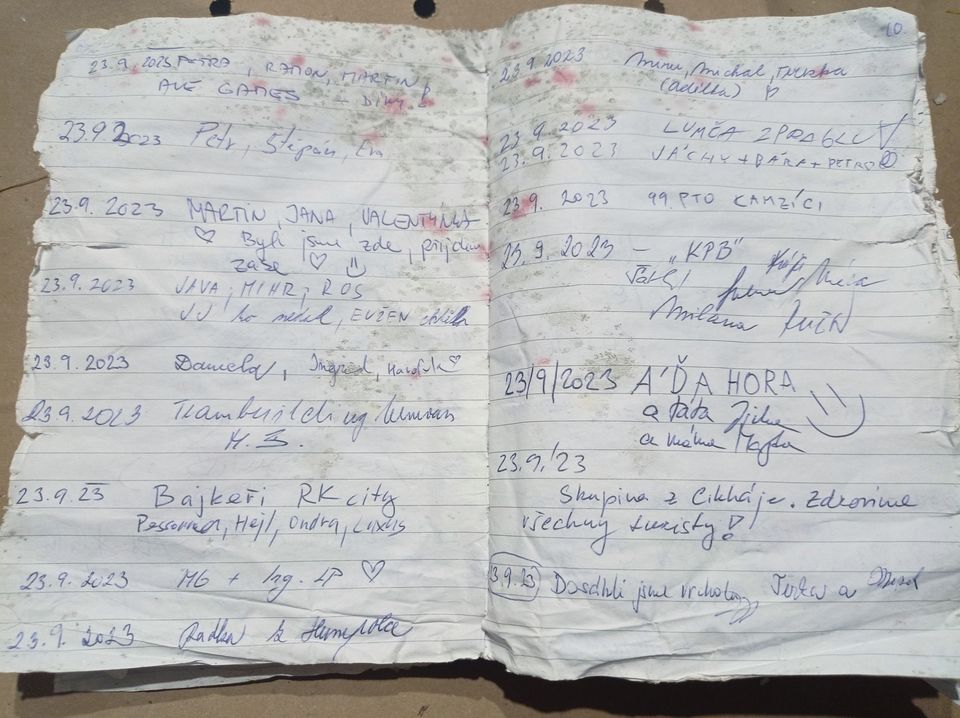 23.9.2023 PETRA, RAMON, MARTIN
AVE GAMES - Díky!
23.9.2023 Petr, Štěpán, Eva
23.9. 2023 MARTIN, JANA, VALENTÝNKA
♡ Byli jsme zde, přijdem
zase ♡
23.9. 2023 JAVA, MIHR, ROS
EVŽEN
23.9.2023 Daniela, Ingrid,
23.9.2023 Teambuilding
23.9.23 Bajkeři RK city
Hejl, Ondra, Luxus
23.9.2023 MG + Ing. LP ♡
23.9. 2023 Radka z Humpolce
10.
23.9 2023 Michal, Terezka
(adélka)
23 9 2023 LUMČA Z PRAGLU
23.9.2023 VÁCHY + BÁRA + PETR
23.9. 2023 99 PTO KAMZÍCI
23.9.2023 - „KPB"
Milana
23/9/2023 A'ĎA HORA
a táta
a máma Majka
23.9.'23
Skupina z Cikháje. Zdravíme
všechny turisty!
23.9.23 Dosáhli jsme vrcholu Terka a